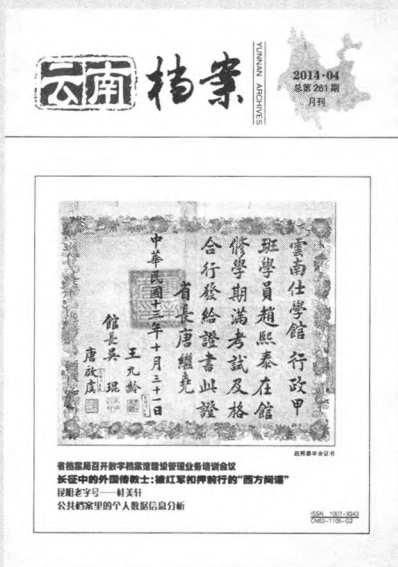 云南 档案
YUNNAN ARCHIVES
2014·04
总第261期
月刊
雲南仕學館行政甲
班學員趙熙泰在館
修學期滿考試及格
合行發給證書此證
省長唐繼堯
中華民國十三年十月三十一日
王九齡
館長吳琨
唐啟虞
赵熙泰毕业证书
省档案局召开数字档案馆建设管理业务培训会议
长征中的外国传教士：被红军扣押前行的“西方间谍”
昆明老字号——桂美轩
公共档案里的个人数据信息分析
ISSN 1007-9343
CN53-1106-G2